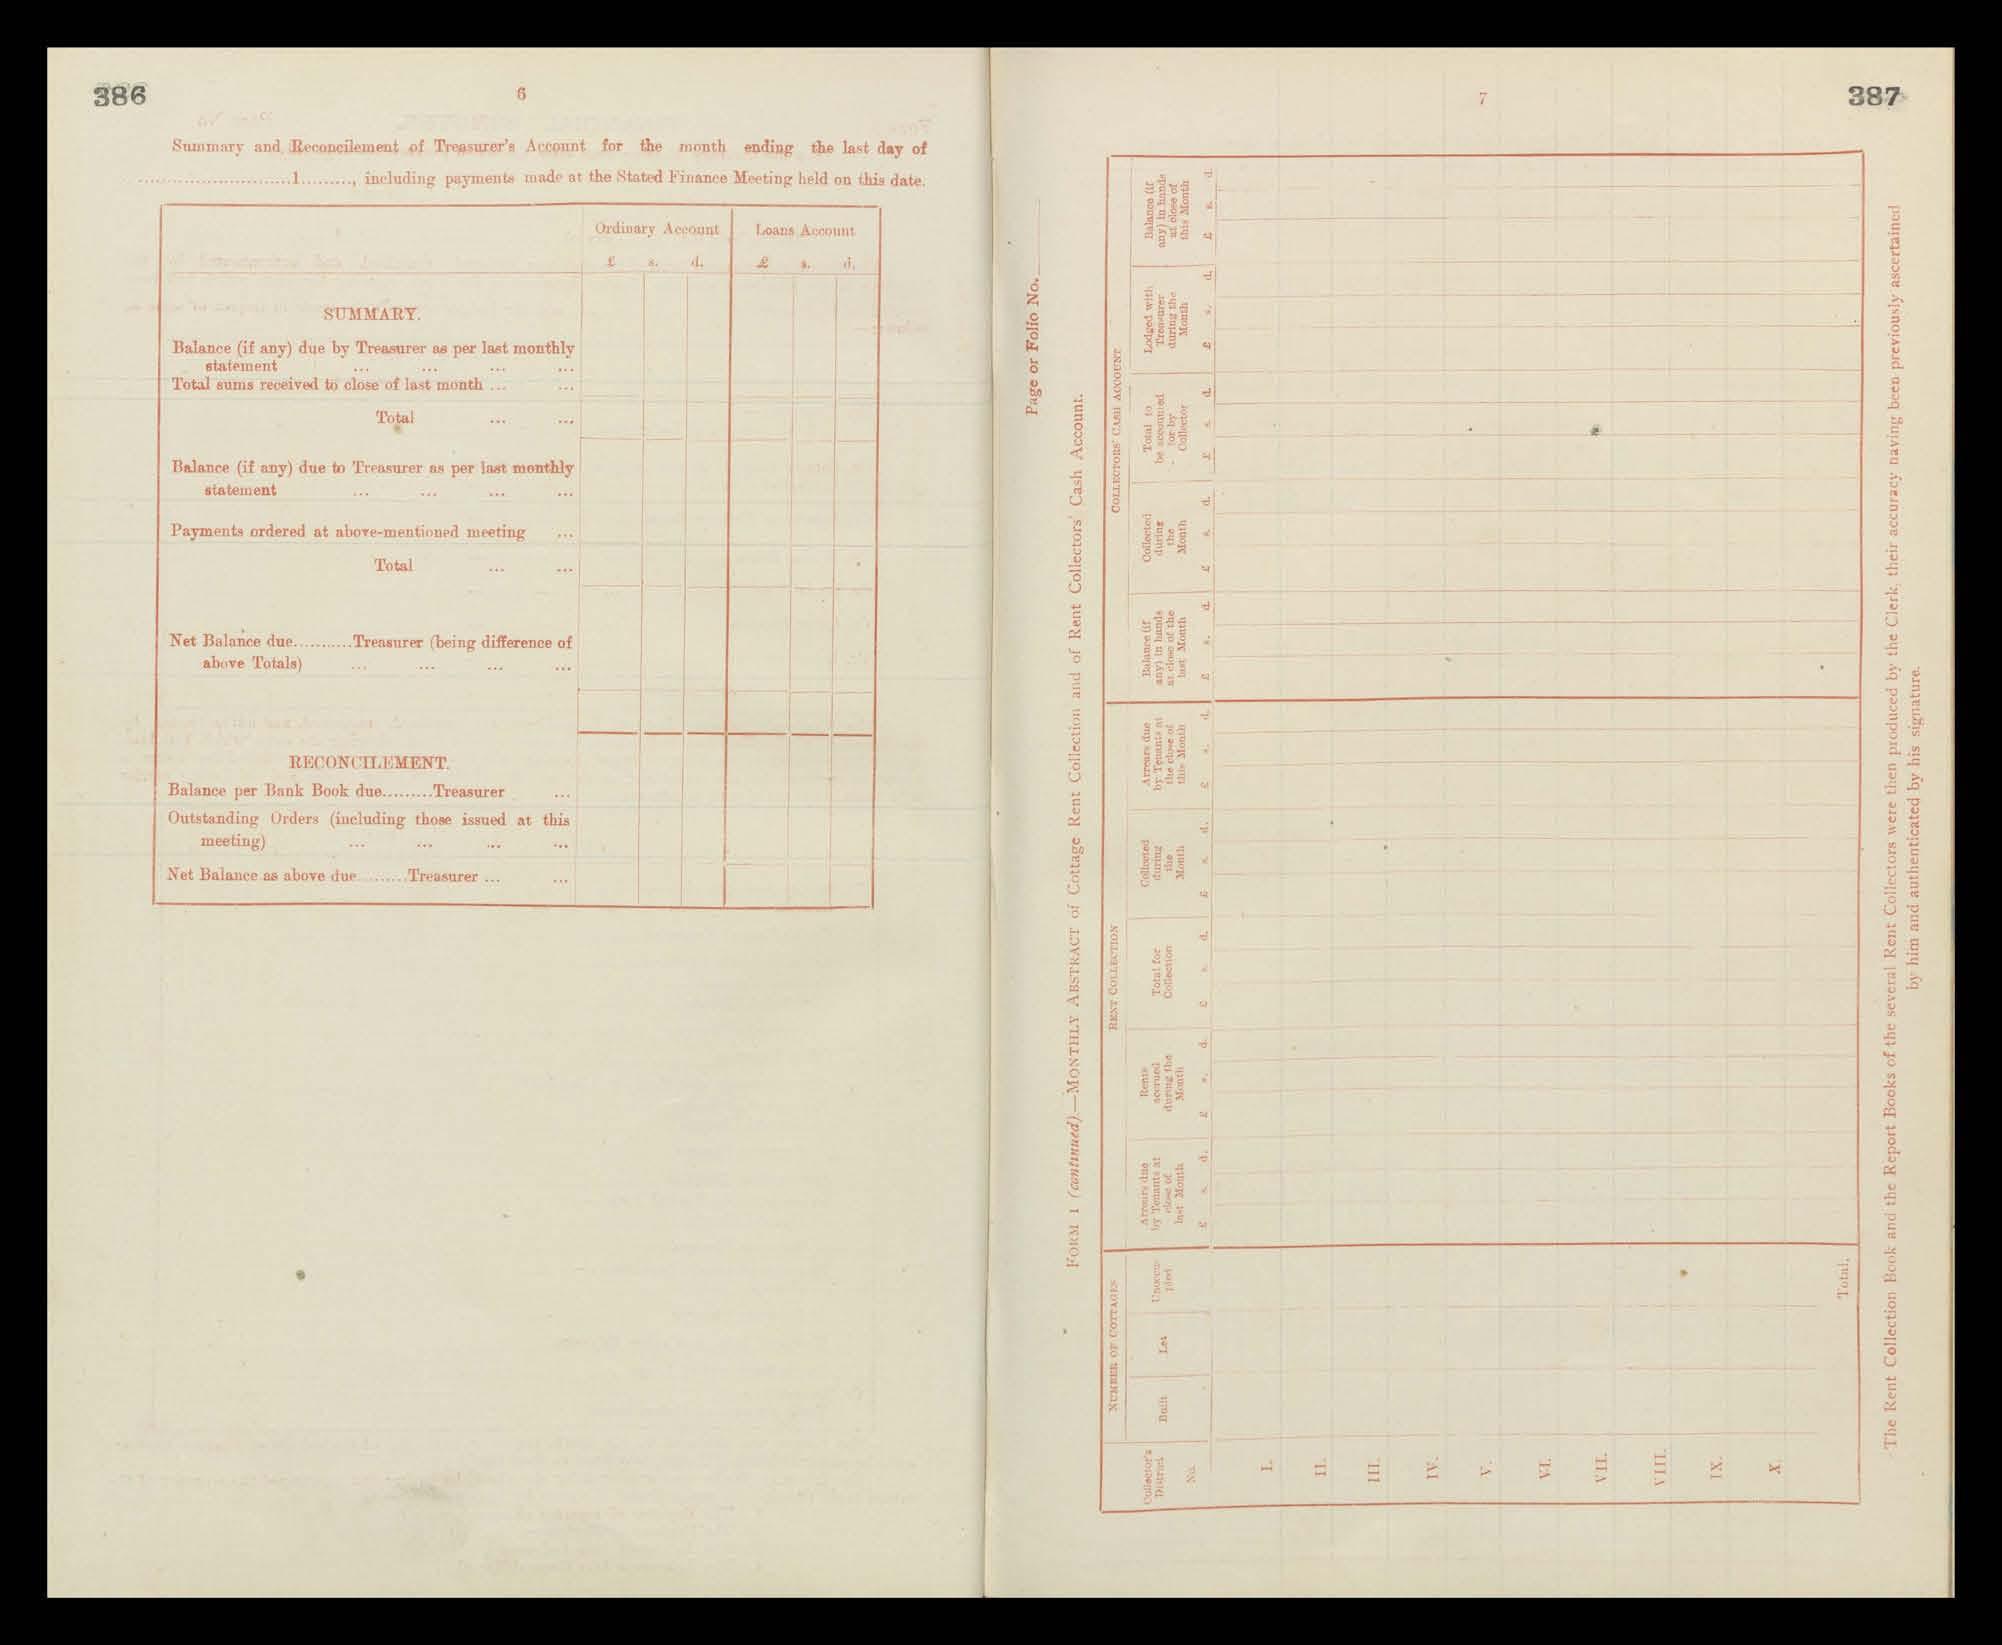 386
6
Summary and Reconcilement of Treasurer's Account for the month ending the last day of
............................1........., including payments made at the Stated Finance Meeting held on this date.
Ordinary Account Loans Account
£ s. d. £ s. d.
SUMMARY.
Balance (if any) due by Treasurer as per last monthly
statement ... ... ... ...
Total sums received to close of last month ... ...
Total ... ...
Balance (if any) due to Treasurer as per last monthly
statement ... ... ... ...
Payments ordered at above-mentioned meeting ...
Total ... ...
Net Balance due...........Treasurer (being difference of
above Totals) ... ... ... ...
RECONCILEMENT.
Balance per Bank Book due.........Treasurer ...
Outstanding Orders (including those issued at this
meeting) ... ... ... ...
Net Balance as above due.........Treasurer ... ...
7
387
Page or Folio No.
FORM 1 (continued).—MONTHLY ABSTRACT of Cottage Rent Collection and of Rent Collectors' Cash Account.
NUMBER OF COTTAGES RENT COLLECTION COLLECTORS' CASH ACCOUNT
Collector's
District
No.
Built
Let
Unoccu-
pied
Arrears due
by Tenants at
close of
last Month
£ s. d.
Rents
accrued
during the
Month
£ s. d.
Total for
Collection
£ s. d.
Collected
during
the
Month
£ s. d.
Arrears due
by Tenants at
the close of
this Month
£ s. d.
Balance (if
any) in hands
at close of the
last Month
£ s. d.
Collected
during
the
Month
£ s. d.
Total to
be accounted
for by
Collector
£ s. d.
Lodged with
Treasurer
during the
Month
£ s. d.
Balance (if
any) in hands
at close of
this Month
£ s. d.
I.
II.
III.
IV.
V.
VI.
VII.
VIII.
IX.
X.
Total,
The Rent Collection Book and the Report Books of the several Rent Collectors were then produced by the Clerk, their accuracy having been previously ascertained
by him and authenticated by his signature.